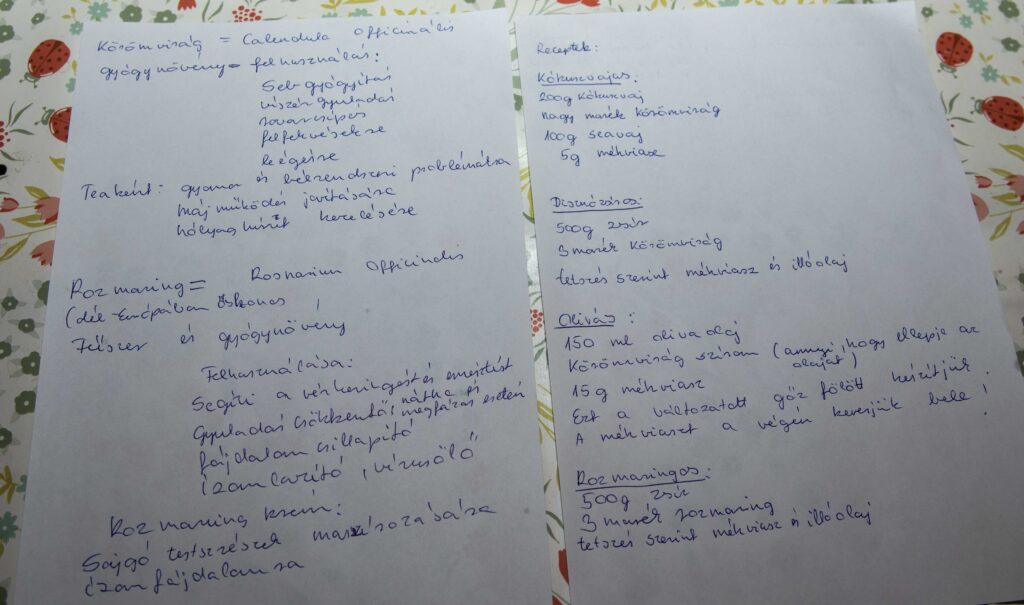 Körömvirág = Calendula officinális
gyógynövény = felhasználás:
Seb gyógyítás
viszér gyuladás
rovarcsípés
felfekvésekre
leégésre
Teaként: gyomor és bélrendszeri problémákra
máj működés javítására
hólyaghurut kezelésére
Rozmaring = Rosmarium Officinalis
(dél-Európában őshonos)
Fűszer és gyógynövény
Felhasználása:
Segíti a vérkeringést és emésztést
Gyuladás csökkentő, nátha és megfázás esetén
fájdalom csillapító
izomlazító, vízűző
Rozmaring krém:
Sajgó testrészek masszírozására
izomfájdalomra
Receptek:
Kókuszvajas:
200g Kókuszvaj
nagy marék Körömvirág
100g seavaj
5g méhviasz
Disznózsíros:
500g zsír
3 marék Körömvirág
tetszés szerint méhviasz és illóolaj
Olivás:
150 ml oliva olaj
Körömvirág szirom (annyi, hogy ellepje az olaját)
15g méhviasz
Ezt a változatott gőz fölött készítjük.
A méhviaszt a végén keverjük bele!
Rozmaringos:
500g zsír
3 marék rozmaring
tetszés szerint méhviasz és illóolaj